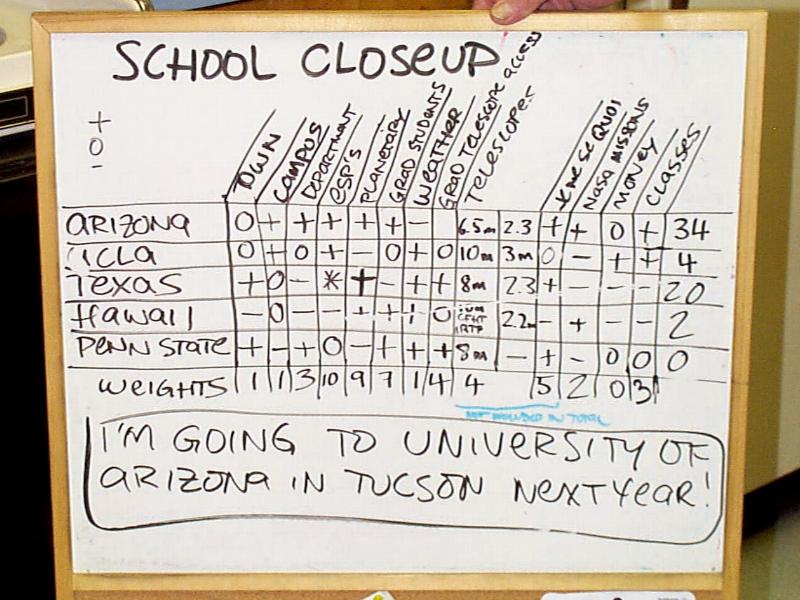 SCHOOL CLOSEUP
+
0
-
TOWN CAMPUS DEPARTMENT ESP'S PLANETARY GRAD STUDENTS WEATHER GRAD TELESCOPE ACCESS TELESCOPES NASA MISSIONS MONEY CLASSES
ARIZONA 0 + + + + + - 6.5m 2.3 + + 0 + 34
UCLA 0 + 0 + - 0 + 0 10m 3m 0 - + + 4
TEXAS + 0 - * + - + + 8m 2.3 + - - - 20
HAWAII - 0 - - + + + 0 CFHT IRTF 2.2m - + - - 2
PENN STATE + - + 0 - + + + 8m - + - 0 0 0
WEIGHTS 1 1 3 10 9 7 1 4 4 5 2 0 3
NOT INCLUDED IN TOTAL
I'M GOING TO UNIVERSITY OF
ARIZONA IN TUCSON NEXT YEAR!